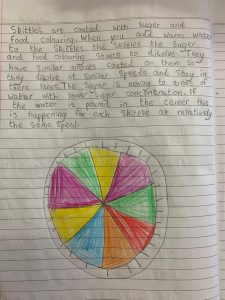 Skittles are coated with Suger and
food colouring. When you add warm water
to the Skittles the Skittles the Suger
and food Colouring Starts to disolve. They
have similar amounts coated on them so
they disolve at Similar Speeds and Stay in
there lanes. The Sugar is moving to areas of
water with low Sugar concentration. If
the water is poured in the center this
is happening for each Skittle at relatively
the same Speed.